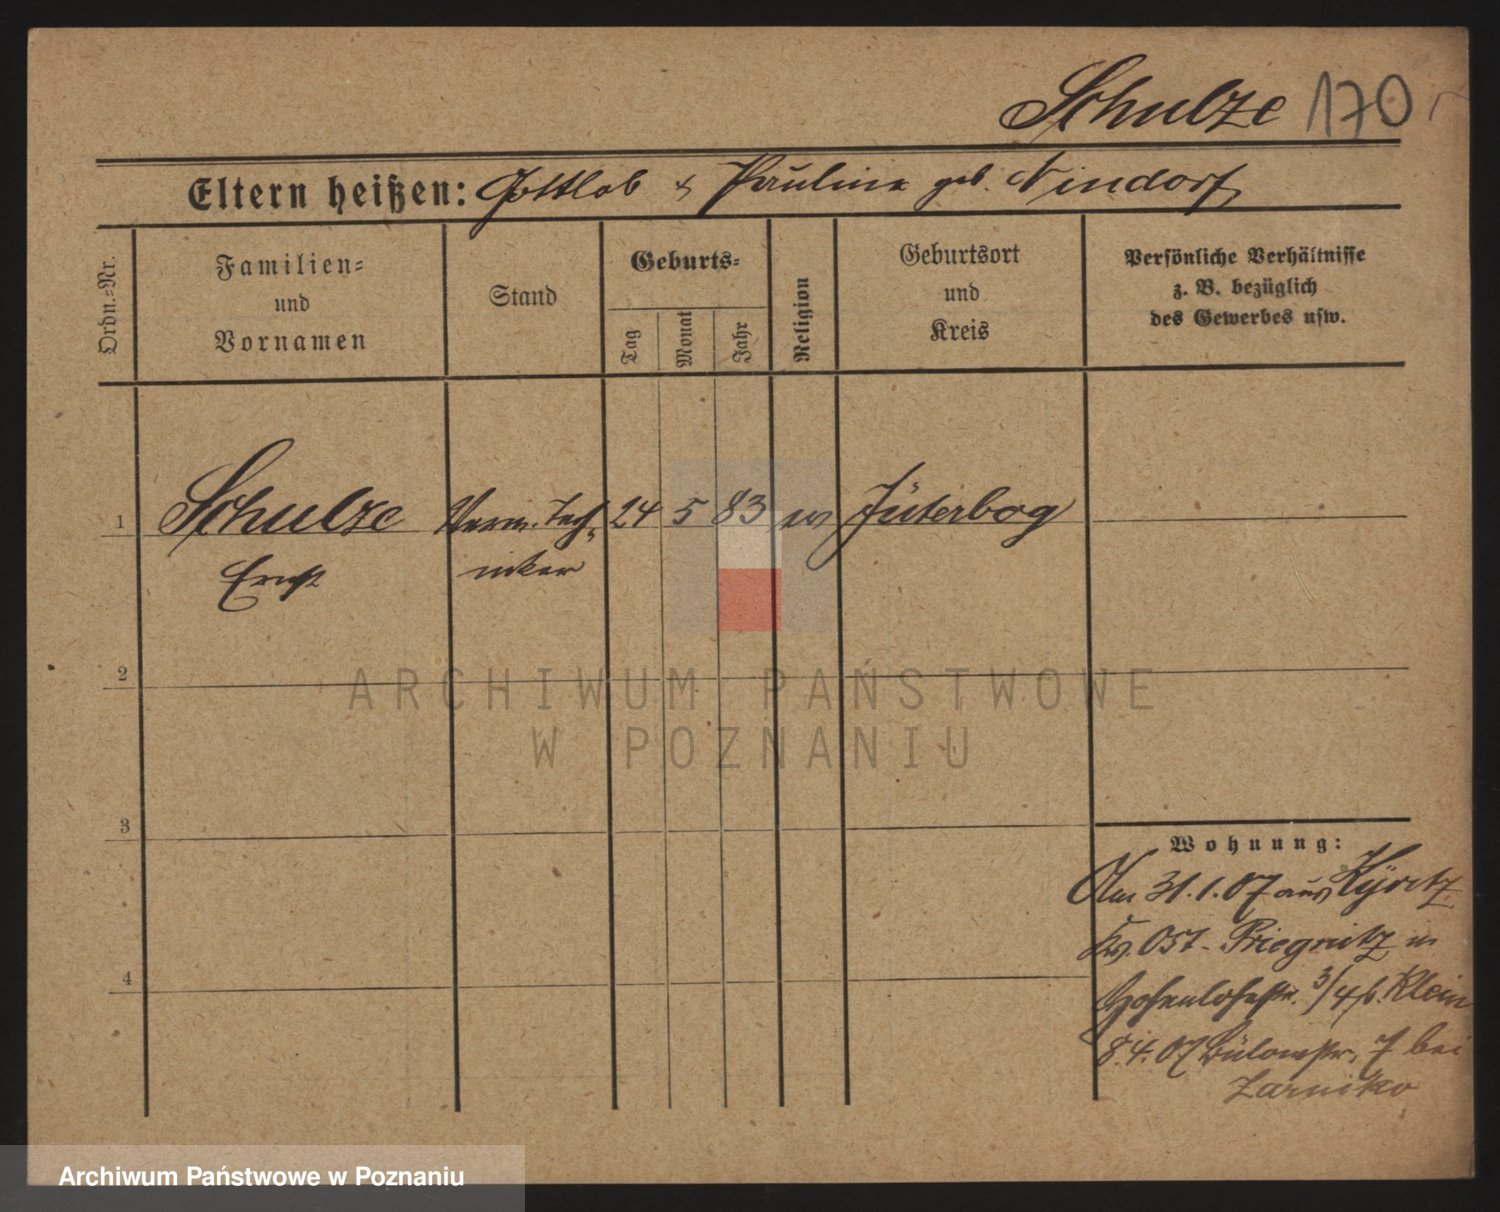 Schulze 170
Eltern heißen: Gottlob & Pauline geb. Nindorf
Ordn.-Nr.
Familien-
und
Vornamen
Stand
Geburts-
Tag
Monat
Jahr
Religion
Geburtsort
und
Kreis
Persönliche Verhältnisse
z. B. bezüglich
des Gewerbes usw.
1 Schulze Verm. Tech- 24 5 83 ev Jüterbog
Ernst niker
2
ARCHIWUM PAŃSTWOWE
W POZNANIU
3
Wohnung:
Am 31.1.07 aus Kyritz
Kr. Ost-Priegnitz in
4
Hohenlohestr. 3/4 b. Klein
8.4.07 Bülowstr. 7 bei
Zarniko
Archiwum Państwowe w Poznaniu